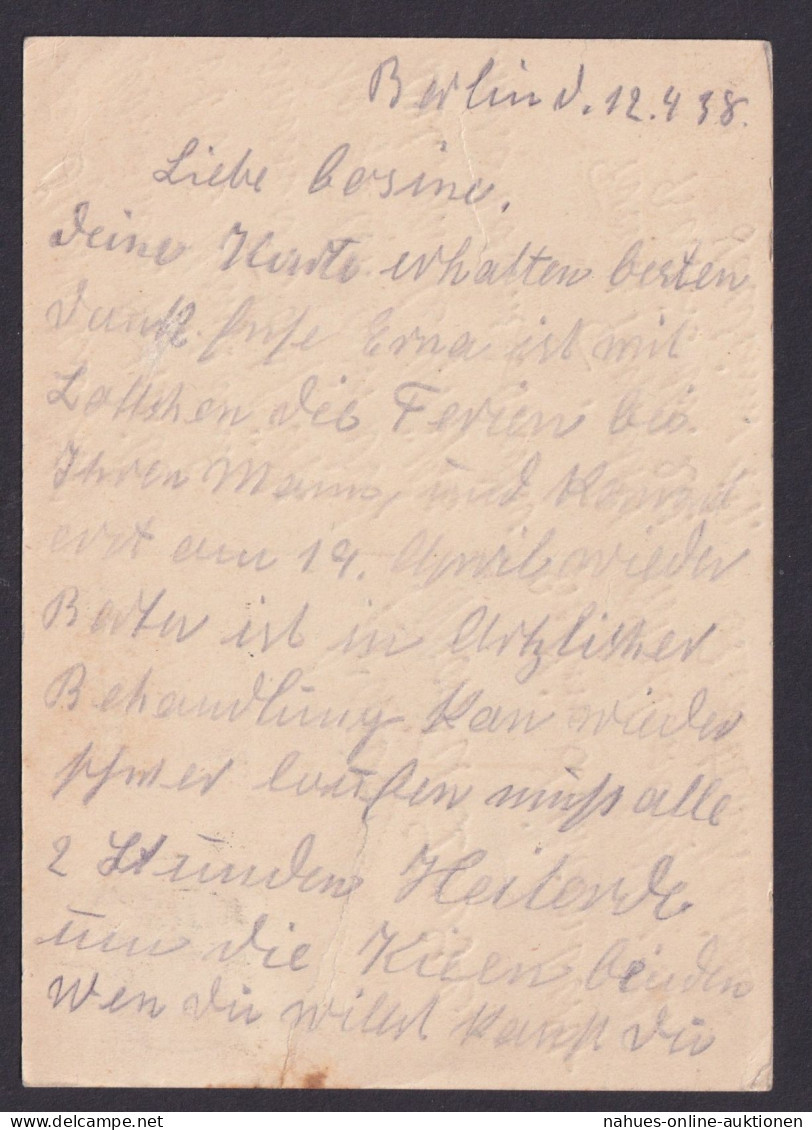 Berlin d. 12.4 38.
Liebe Cosine,
deine Karte erhalten besten
dank Erna ist mit
Lottchen die Ferien bei
Ihren Mann, und Kommt
erst am 19. April wieder
ist in Artzlicher
Behandlung Kan wieder
schwer laufen muß alle
2 Stunden Heilerde
um die Kieen binden
wen du willst kanst du
nahues-online-auktionen